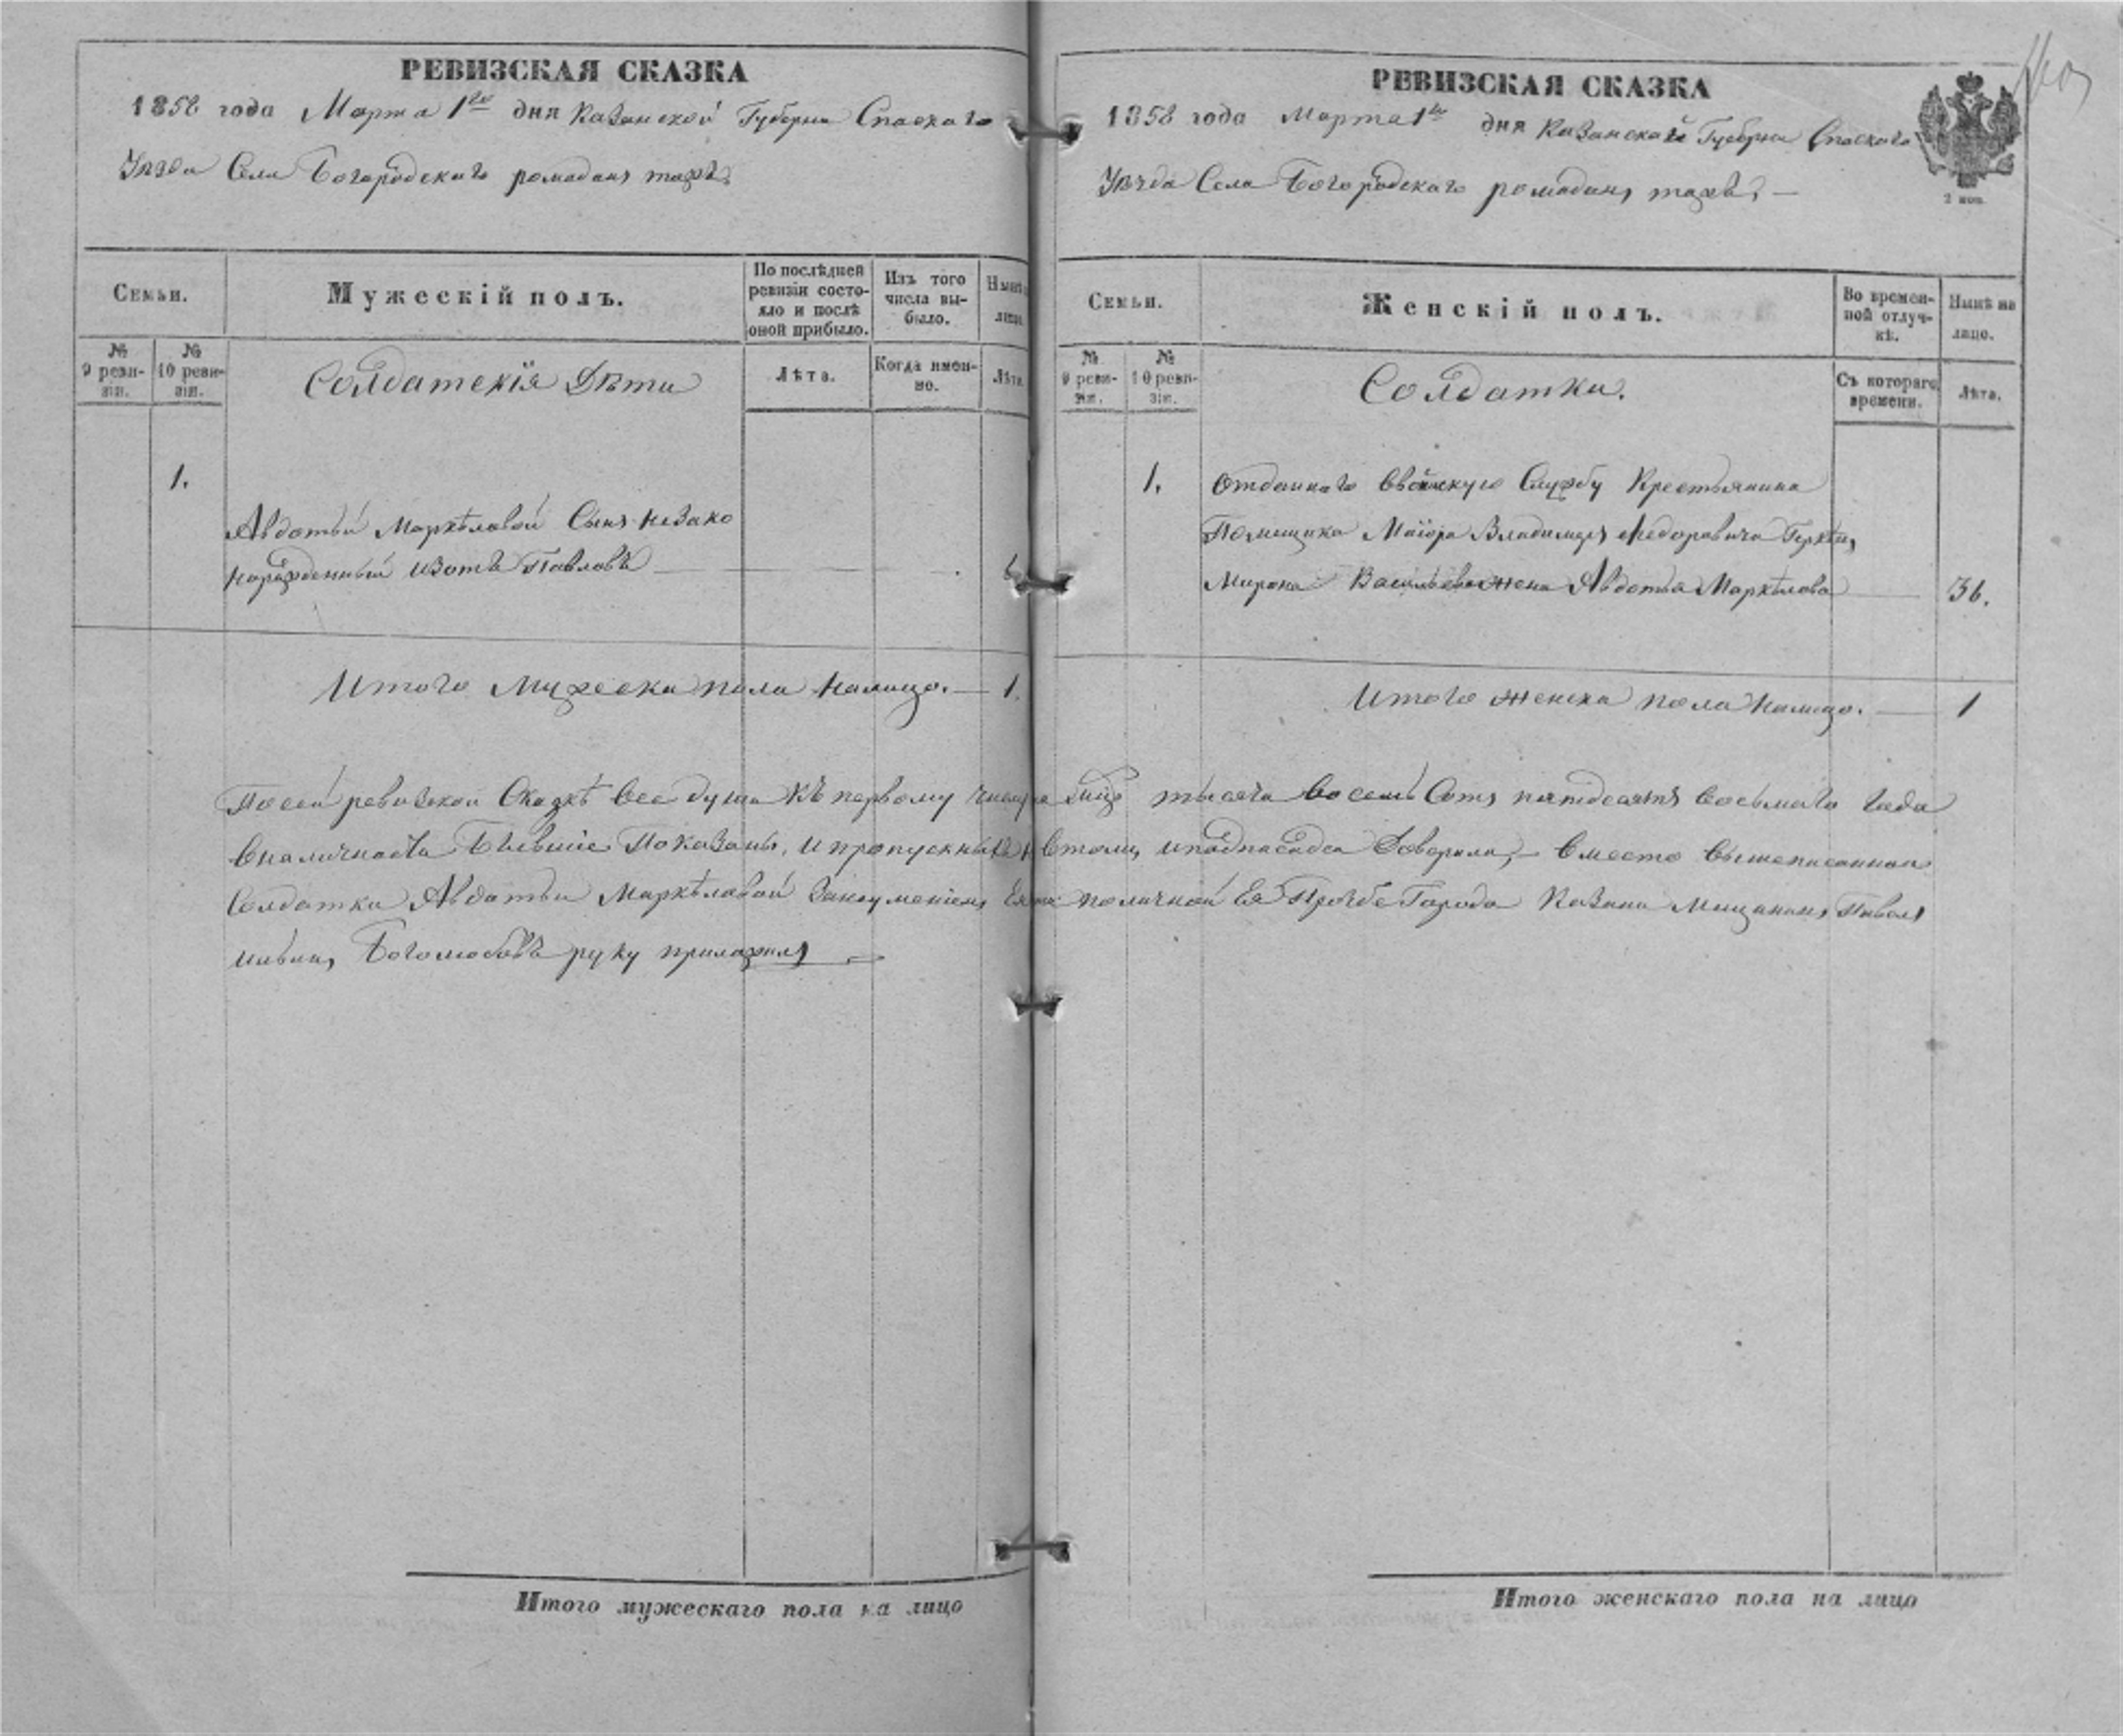 РЕВИЗСКАЯ СКАЗКА
1858 года Марта 1го дня Казанской Губернии Спаскаго
Уезда Села Богородскаго ромадан тожъ
Семьи.
Мужескій полъ.
По послѣдней ревизіи состояло и послѣ оной прибыло.
Изъ того числа выбыло.
Нынѣ лицо.
№ 9 ревизіи.
№ 10 ревизіи.
Солдатскія Дѣти
Лѣта.
Когда именно.
Лѣта.
1.
Авдотьи Маркѣловой Сынъ незако
норожденный Изотъ Павловъ
6
Итого Мужеска пола налицо. 1.
РЕВИЗСКАЯ СКАЗКА
1858 года Марта 1го дня Казанской Губернии Спаскаго
Уѣзда Села Богородскаго ромадан тожъ,
2 коп.
Семьи.
Женскій полъ.
Во временной отлучкѣ.
Нынѣ на лицо.
№ 9 ревизіи.
№ 10 ревизіи.
Солдатки.
Съ котораго времени.
Лѣта.
1. Отданнаго Ввоинскую Службу Крестьянина
Помещика Маіора Владимер Федоровича
Мирона Васильева жена Авдотья Маркѣлова 36.
Итого женска пола налицо. 1
По сей ревизской Сказкѣ Все души Къ первому тысяча восемь Сотъ пятдесятъ восьмаго года
Вналичности Бывшіе Показаны, и пропускных Втомъ Вместо вышеписанной
Солдатки Авдотьи Маркѣловой поличной Ея Прозбе Города Казани Мещанинъ Павел
Боголюбовъ руку приложил
Итого мужескаго пола на лицо
Итого женскаго пола на лицо